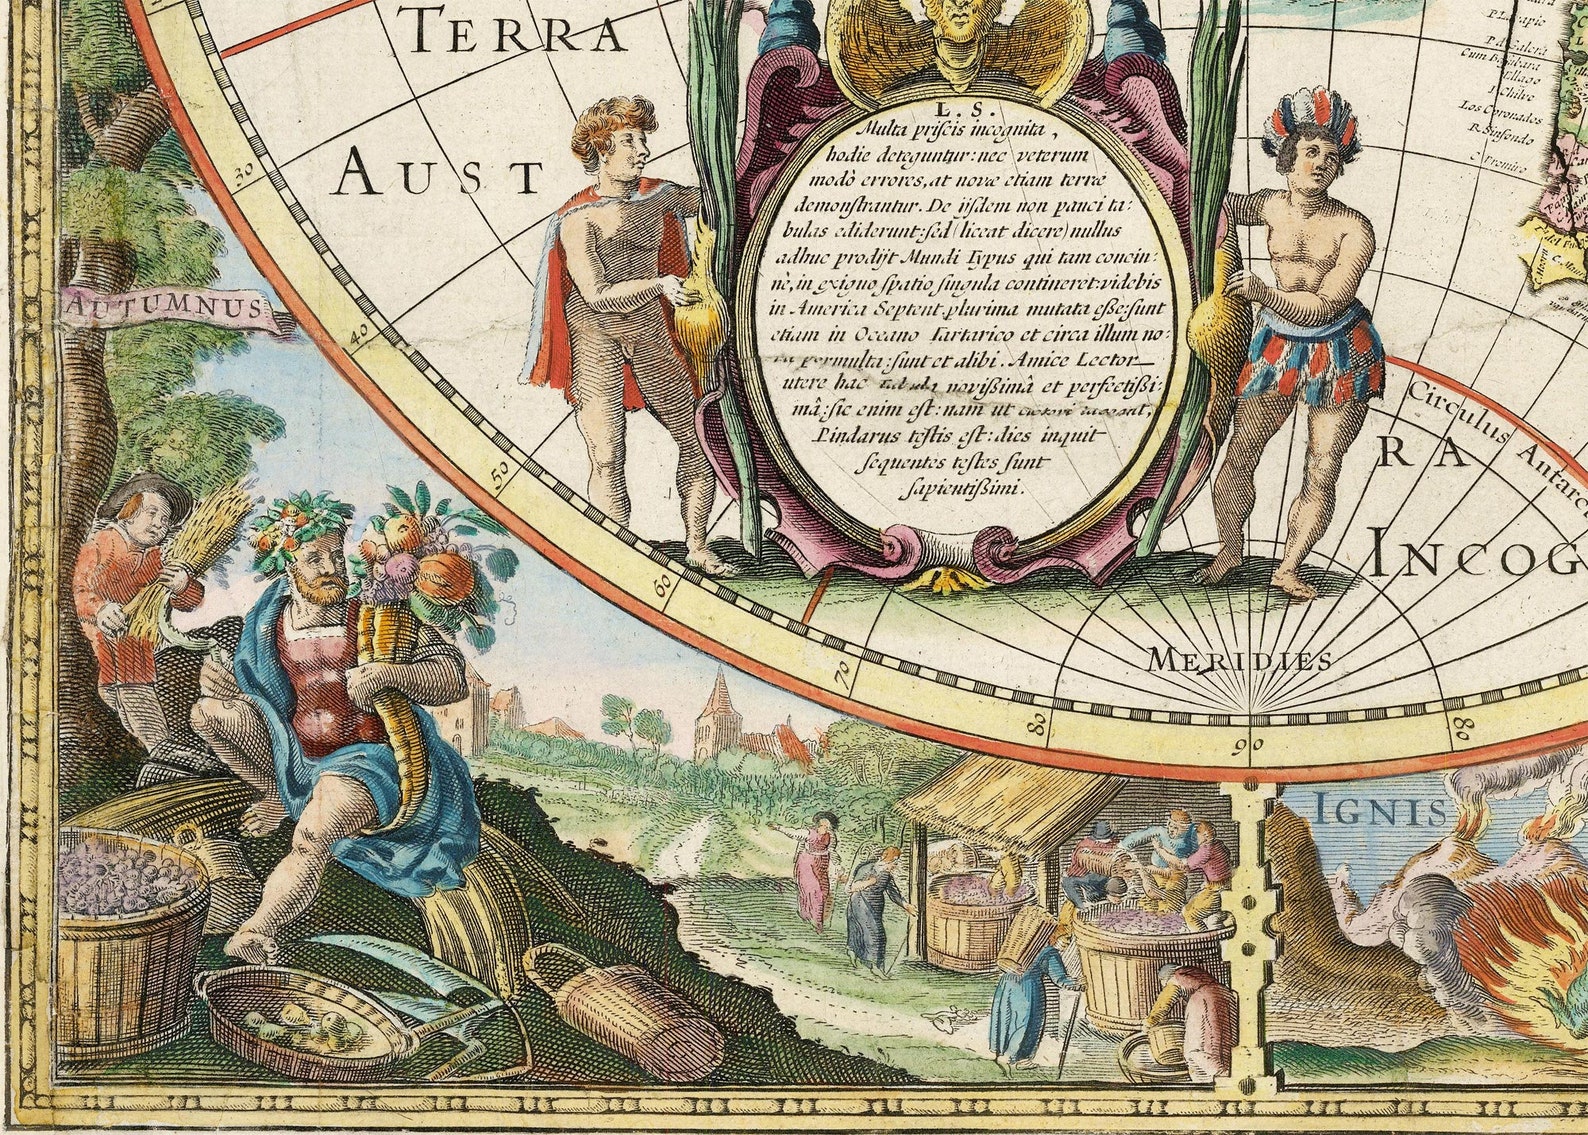 TERRA
AUST
RA
INCOG
L. S.
Multa priſcis incognita,
hodie deteguntur: nec veterum
modò errores, at novæ etiam terræ
demonſtrantur. De ijſdem non pauci ta:
bulas ediderunt: ſed (liceat dicere) nullus
adhuc prodijt Mundi Typus qui tam concin:
nè, in exiguo ſpatio ſingula contineret: videbis
in America Septent. plurima mutata eſſe: ſunt
etiam in Oceano Tartarico et circa illum no:
va permulta: ſunt et alibi. Amice Lector
utere hac tabula novißimâ et perfectißi:
mâ: ſic enim eſt: nam ut
Pindarus teſtis eſt: dies inquit
ſequentes teſtes ſunt
ſapientißimi.
P. d. Galera
Cum Barbara
I. Chilve
Los Coronados
Circulus Antarc
MERIDIES
30
40
50
60
70
80
90
80
AUTUMNUS
IGNIS